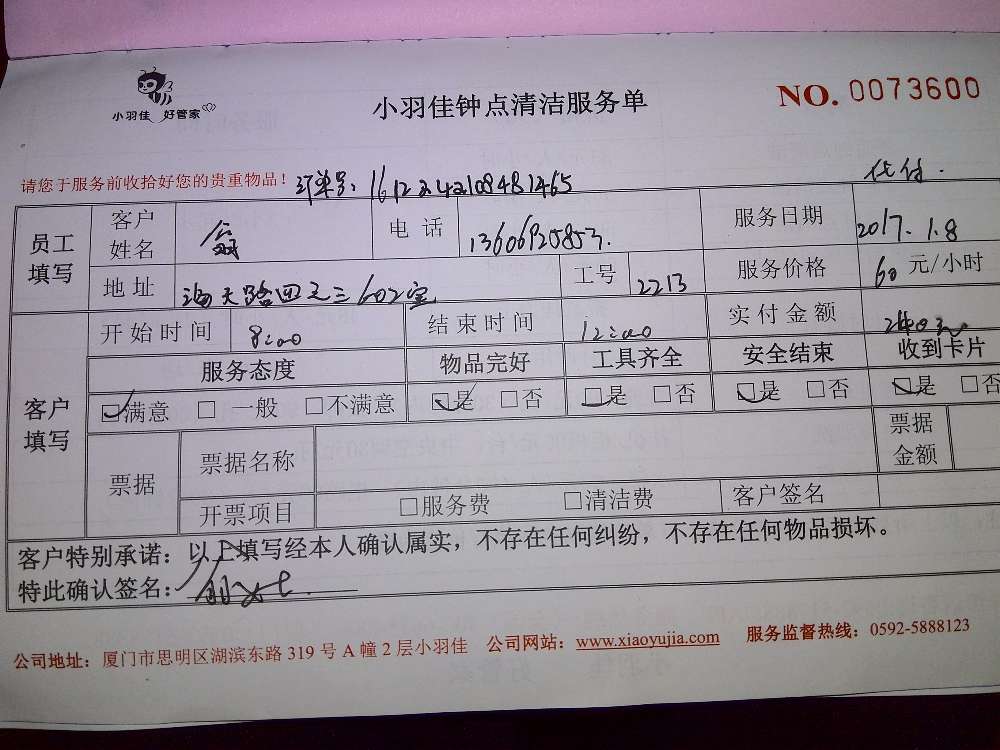 小羽佳 好管家
小羽佳钟点清洁服务单
NO. 0073600
请您于服务前收拾好您的贵重物品！订单号：
代付.
员工填写 客户姓名 电话 13606925853. 服务日期 2017.1.8
地址 工号 2213 服务价格 60 元/小时
客户填写 开始时间 8:00 结束时间 12:00 实付金额 240元
服务态度 物品完好 工具齐全 安全结束 收到卡片
☑满意 □ 一般 □不满意 ☑是 □否 ☑是 □否 ☑是 □否 ☑是 □否
票据 票据名称 票据金额
开票项目 □服务费 □清洁费 客户签名
客户特别承诺：以上填写经本人确认属实，不存在任何纠纷，不存在任何物品损坏。
特此确认签名：
公司地址：厦门市思明区湖滨东路 319 号 A 幢 2 层小羽佳 公司网站：www.xiaoyujia.com 服务监督热线：0592-5888123